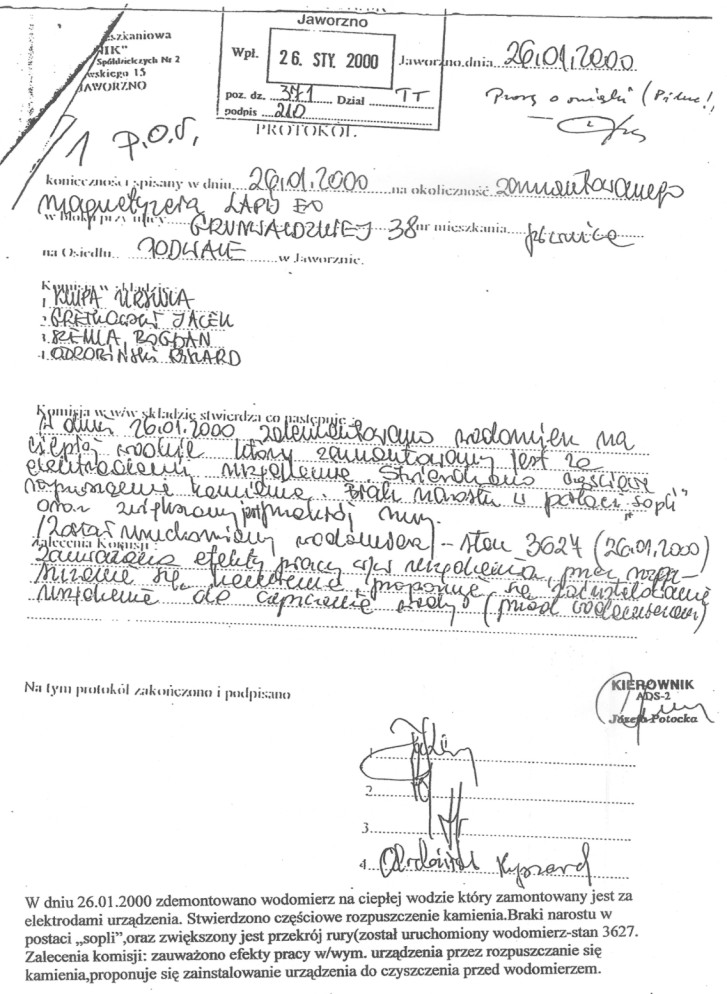 szkaniowa
NIK"
Spółdzielczych Nr 2
wskiego 15
JAWORZNO
Jaworzno
Wpł. 26. STY. 2000
poz. dz. 371 Dział TT
podpis 210
Jaworzno, dnia 26.01.2000
Proszę o
P.O.S.
PROTOKÓŁ
konieczności spisany w dniu 26.01.2000 na okoliczność zamontowanego
magnetyzera
w bloku przy ulicy GRUNWALDZKIEJ 38 nr mieszkania piwnica
na Osiedlu PODWALE w Jaworznie.
KLUPA URSZULA
JACEK
BOGDAN
RYSZARD
Komisja w w/w składzie stwierdza co następuje:
W dniu 26.01.2000 zdemontowano wodomierz na
ciepłej wodzie który zamontowany jest za
elektrodami urządzenia. Stwierdzono częściowe
rozpuszczenie kamienia. Braki narostu w postaci „sopli"
oraz zwiększony jest przekrój rury.
(został uruchomiony wodomierz) - stan 3627 (26.01.2000)
Zalecenia Komisji:
Zauważono efekty pracy w/w urządzenia, przez rozpu-
szczenie się kamienia, proponuje się zainstalowanie
urządzenia do czyszczenia wody (przed wodomierzem)
Na tym protokół zakończono i podpisano
KIEROWNIK
ADS-2
Józefa Potocka
1
2
3
4. Odrobiński Ryszard
W dniu 26.01.2000 zdemontowano wodomierz na ciepłej wodzie który zamontowany jest za
elektrodami urządzenia. Stwierdzono częściowe rozpuszczenie kamienia.Braki narostu w
postaci „sopli",oraz zwiększony jest przekrój rury(został uruchomiony wodomierz-stan 3627.
Zalecenia komisji: zauważono efekty pracy w/wym. urządzenia przez rozpuszczanie się
kamienia,proponuje się zainstalowanie urządzenia do czyszczenia przed wodomierzem.